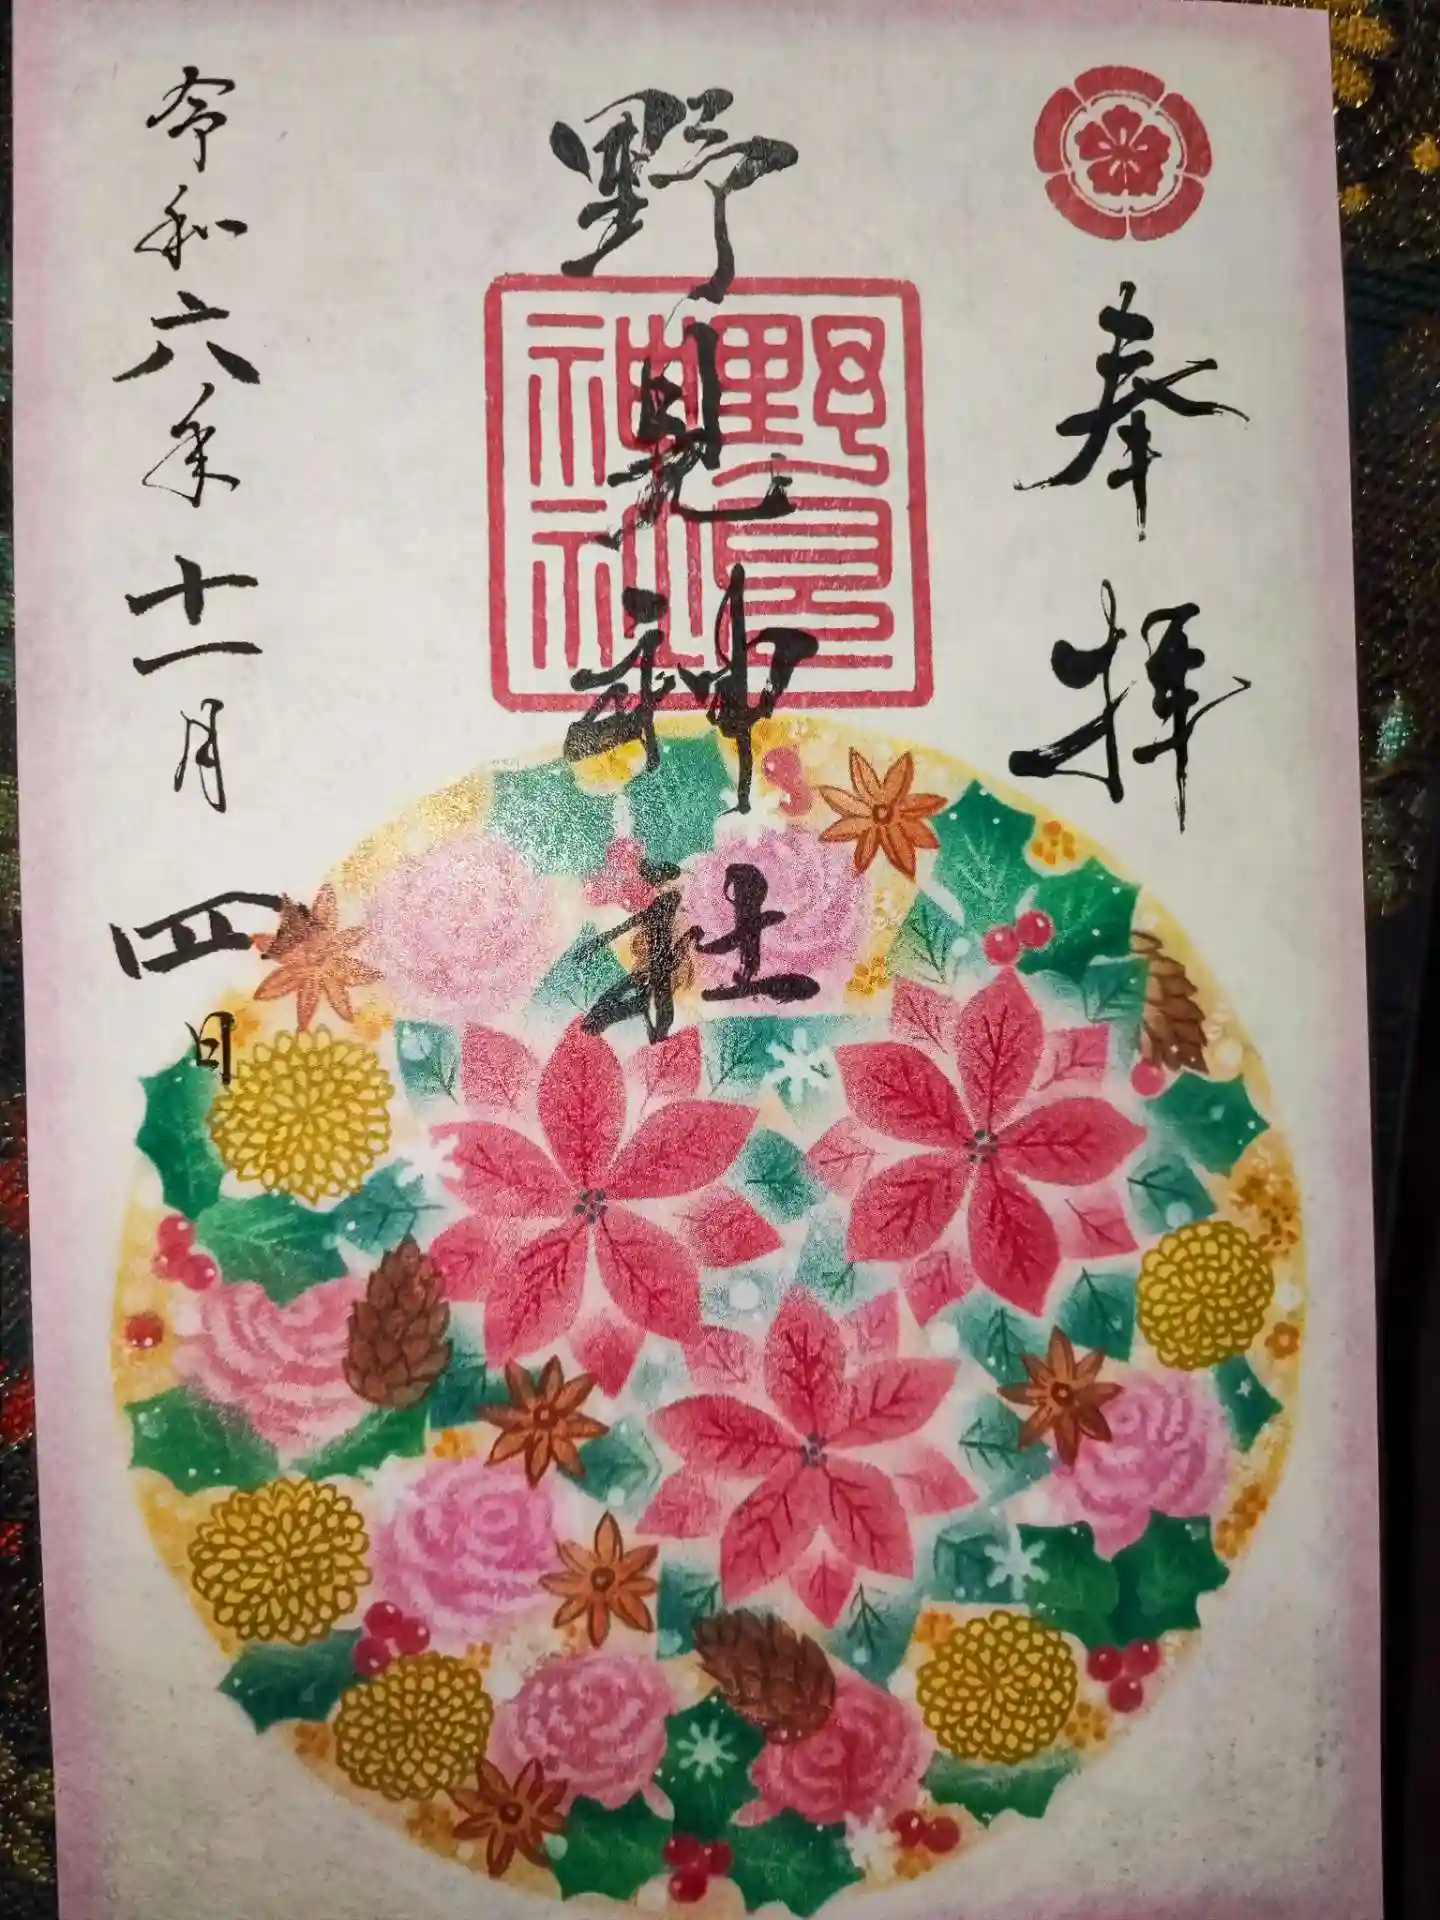 奉拝
野見神社
野見神社
令和六年十一月四日